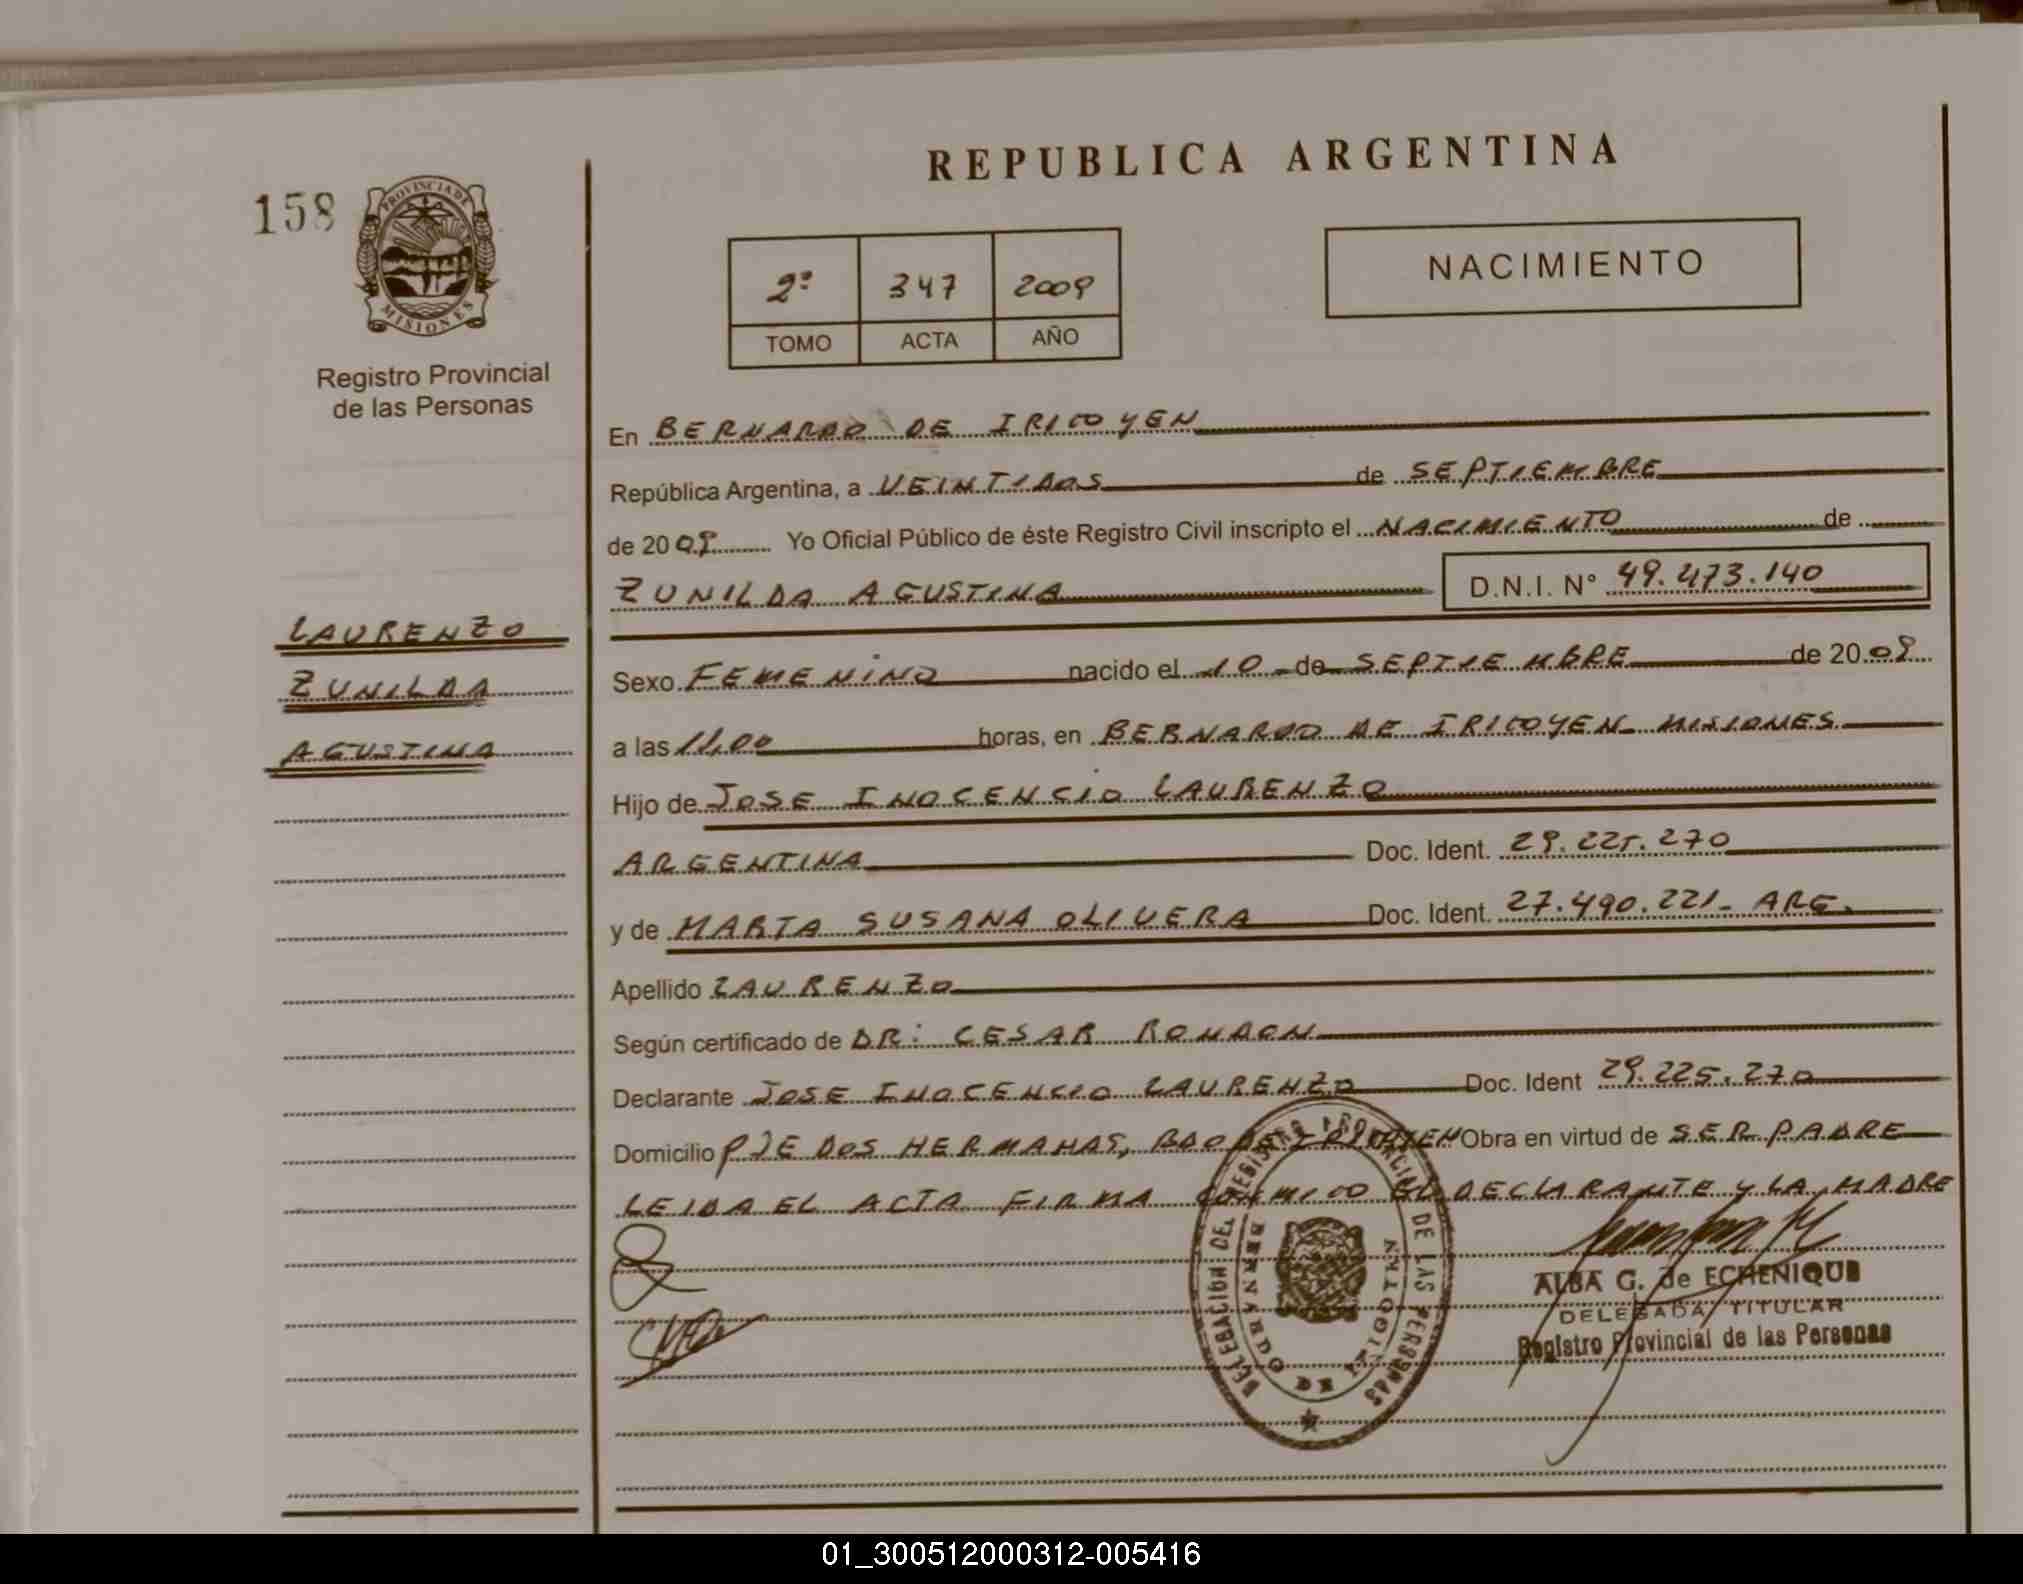 REPUBLICA ARGENTINA
158
PROVINCIA DE
MISIONES
Registro Provincial
de las Personas
2º 347 2009
TOMO ACTA AÑO
NACIMIENTO
En BERNARDO DE IRIGOYEN
República Argentina, a VEINTIDOS de SEPTIEMBRE
de 2009 Yo Oficial Público de éste Registro Civil inscripto el NACIMIENTO de
ZUNILDA AGUSTINA D.N.I. N° 49.473.140
LAURENZO
ZUNILDA
AGUSTINA
Sexo FEMENINO nacido el 10 de SEPTIEMBRE de 2009
a las 11,00 horas, en BERNARDO DE IRIGOYEN - MISIONES
Hijo de JOSE INOCENCIO LAURENZO
ARGENTINA Doc. Ident. 29.225.270
y de MARTA SUSANA OLIVERA Doc. Ident. 27.490.221- ARG.
Apellido LAURENZO
Según certificado de DR: CESAR RONDON
Declarante JOSE INOCENCIO LAURENZO Doc. Ident 29.225.270
Domicilio PJE DOS HERMANAS, BDO DE IRIGOYEN Obra en virtud de SER PADRE
LEIDA EL ACTA FIRMA CONMIGO EL DECLARANTE Y LA MADRE
DELEGACION DEL REGISTRO PROVINCIAL DE LAS PERSONAS
BERNARDO DE IRIGOYEN
ALBA G. de ECHENIQUE
DELEGADA TITULAR
Registro Provincial de las Personas
01_300512000312-005416